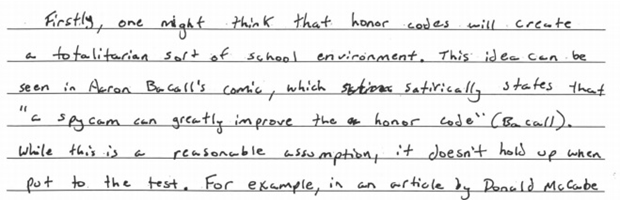 Firstly, one might think that honor codes will create
a totalitarian sort of school environment. This idea can be
seen in Aaron Bacall's comic, which satirically states that
"a spycam can greatly improve the honor code" (Bacall).
While this is a reasonable assumption, it doesn't hold up when
put to the test. For example, in an article by Donald McCabe